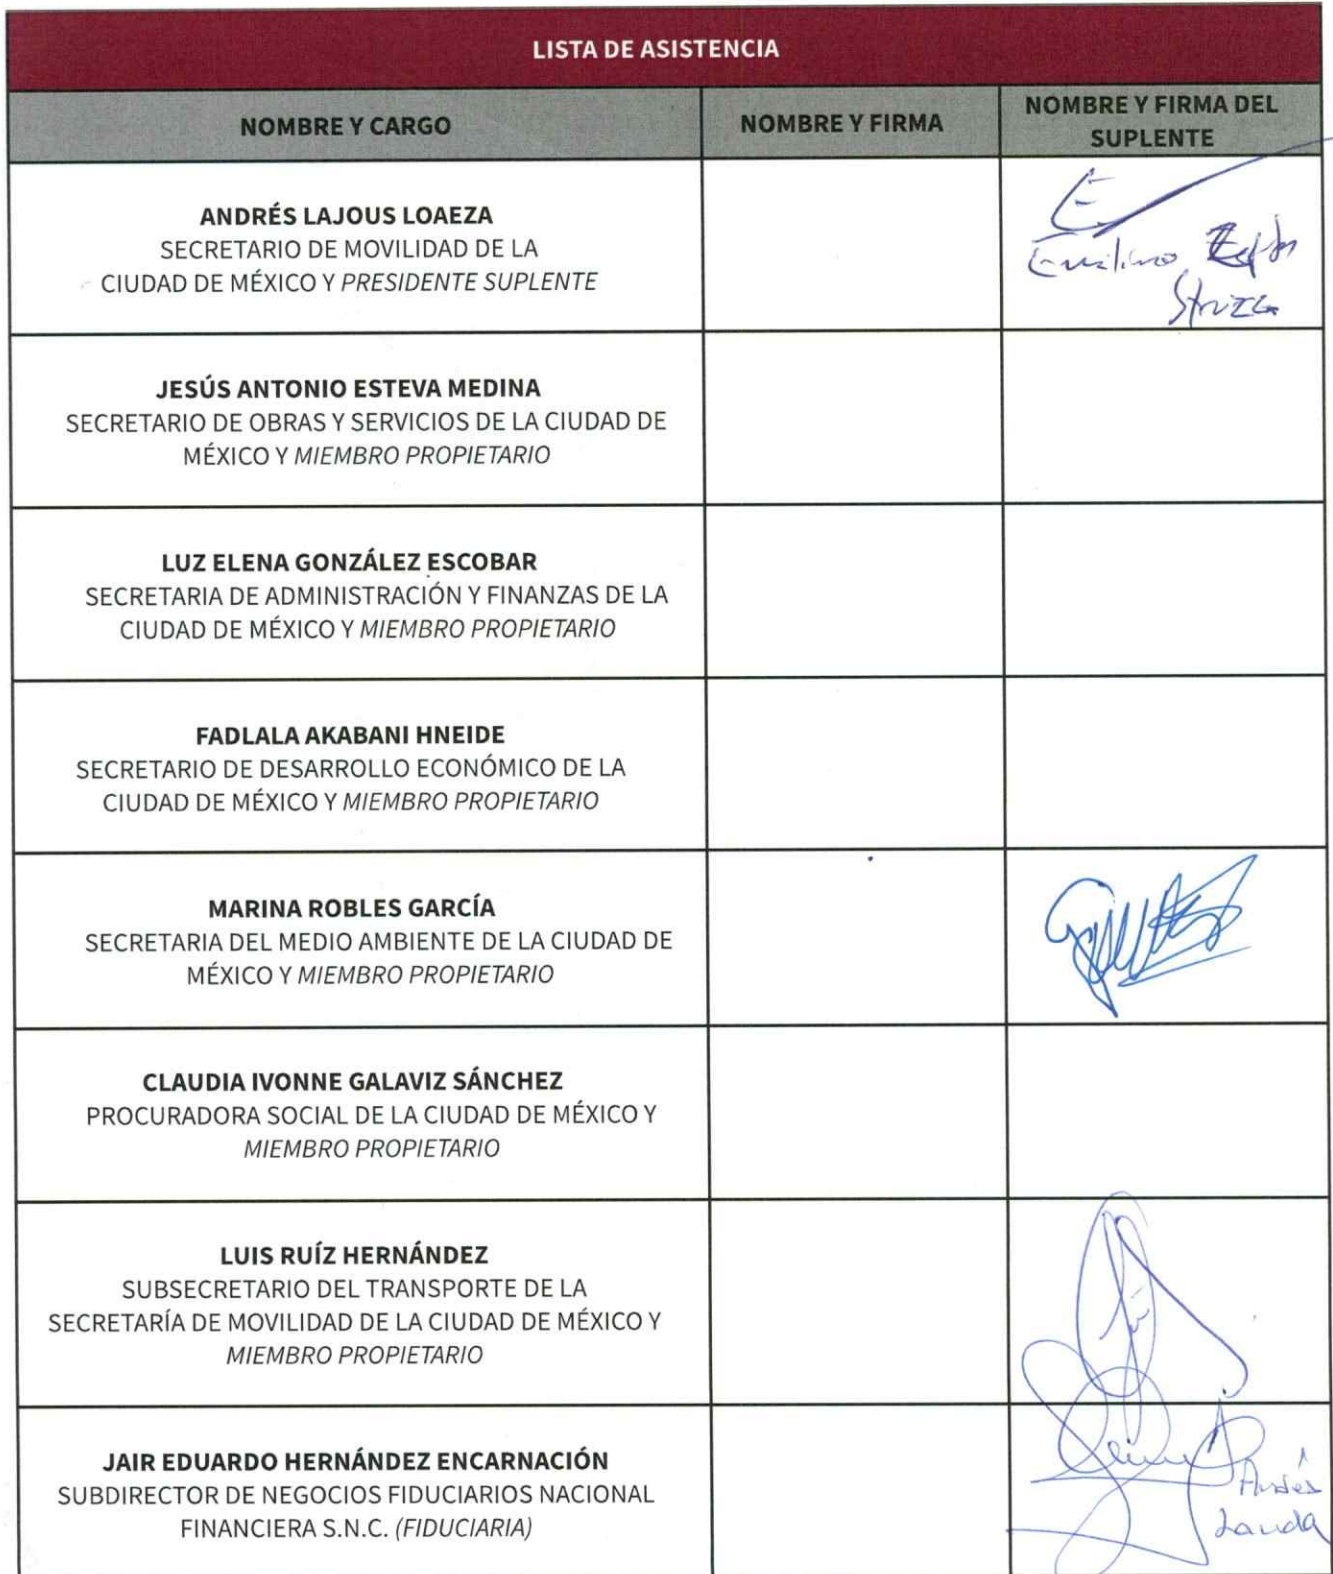 LISTA DE ASISTENCIA
NOMBRE Y CARGO
NOMBRE Y FIRMA
NOMBRE Y FIRMA DEL
SUPLENTE
ANDRÉS LAJOUS LOAEZA
SECRETARIO DE MOVILIDAD DE LA
CIUDAD DE MÉXICO Y PRESIDENTE SUPLENTE
JESÚS ANTONIO ESTEVA MEDINA
SECRETARIO DE OBRAS Y SERVICIOS DE LA CIUDAD DE
MÉXICO Y MIEMBRO PROPIETARIO
LUZ ELENA GONZÁLEZ ESCOBAR
SECRETARIA DE ADMINISTRACIÓN Y FINANZAS DE LA
CIUDAD DE MÉXICO Y MIEMBRO PROPIETARIO
FADLALA AKABANI HNEIDE
SECRETARIO DE DESARROLLO ECONÓMICO DE LA
CIUDAD DE MÉXICO Y MIEMBRO PROPIETARIO
MARINA ROBLES GARCÍA
SECRETARIA DEL MEDIO AMBIENTE DE LA CIUDAD DE
MÉXICO Y MIEMBRO PROPIETARIO
CLAUDIA IVONNE GALAVIZ SÁNCHEZ
PROCURADORA SOCIAL DE LA CIUDAD DE MÉXICO Y
MIEMBRO PROPIETARIO
LUIS RUÍZ HERNÁNDEZ
SUBSECRETARIO DEL TRANSPORTE DE LA
SECRETARÍA DE MOVILIDAD DE LA CIUDAD DE MÉXICO Y
MIEMBRO PROPIETARIO
JAIR EDUARDO HERNÁNDEZ ENCARNACIÓN
SUBDIRECTOR DE NEGOCIOS FIDUCIARIOS NACIONAL
FINANCIERA S.N.C. (FIDUCIARIA)
Andrés
Landa